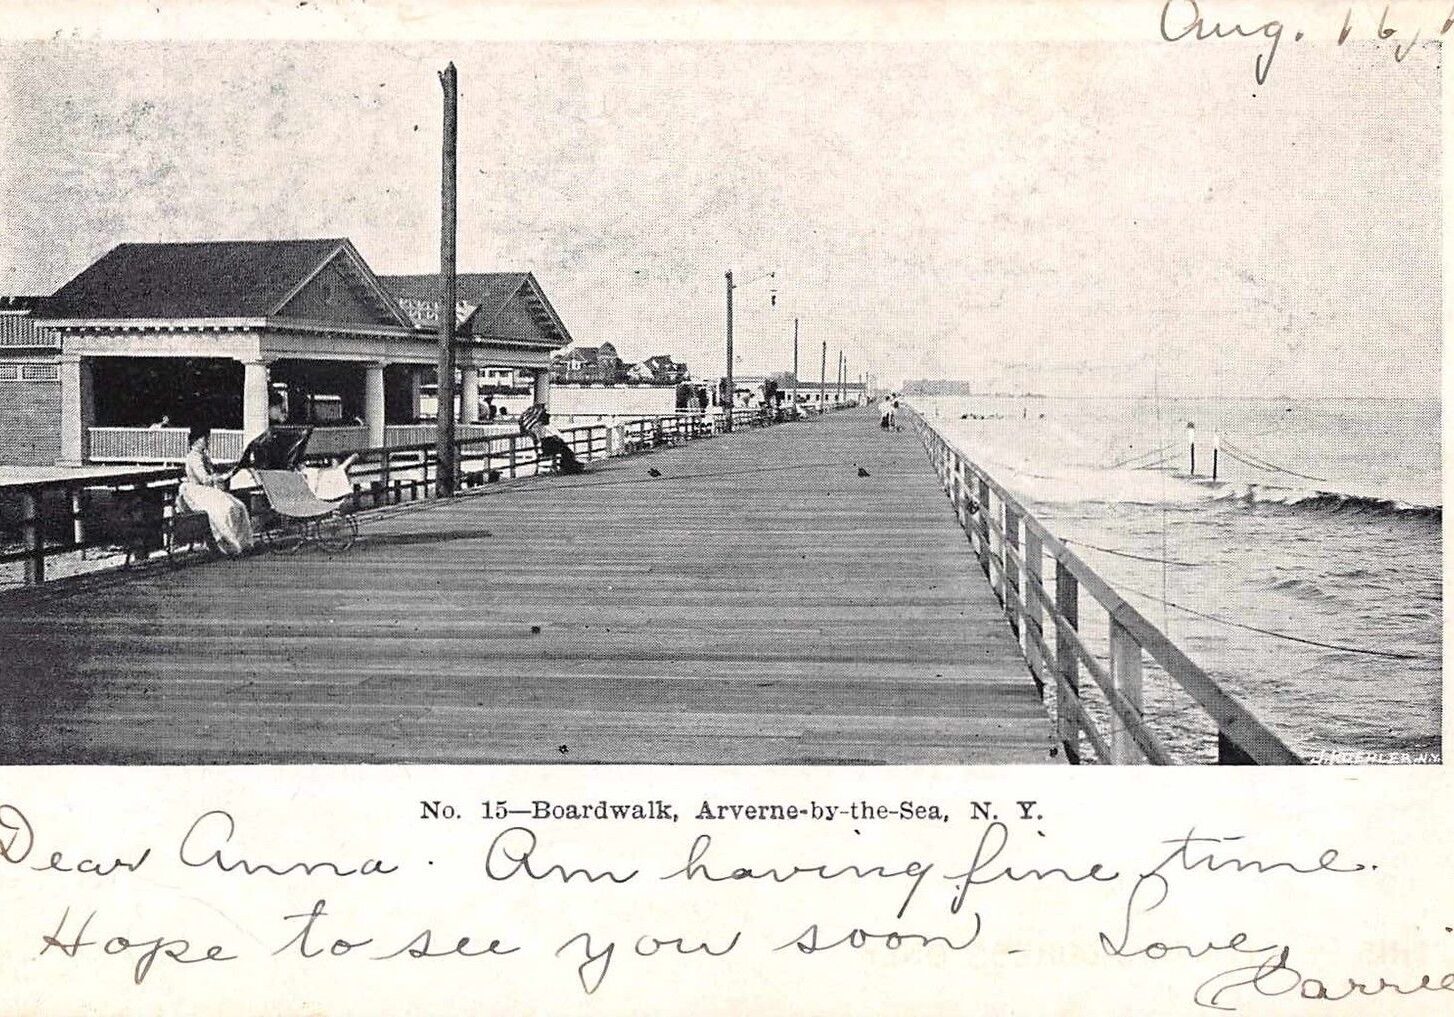 Aug. 16,
J. KOEHLER, N.Y.
No. 15—Boardwalk, Arverne-by-the-Sea, N. Y.
Dear Anna. Am having fine time.
Hope to see you soon - Love,
Carrie